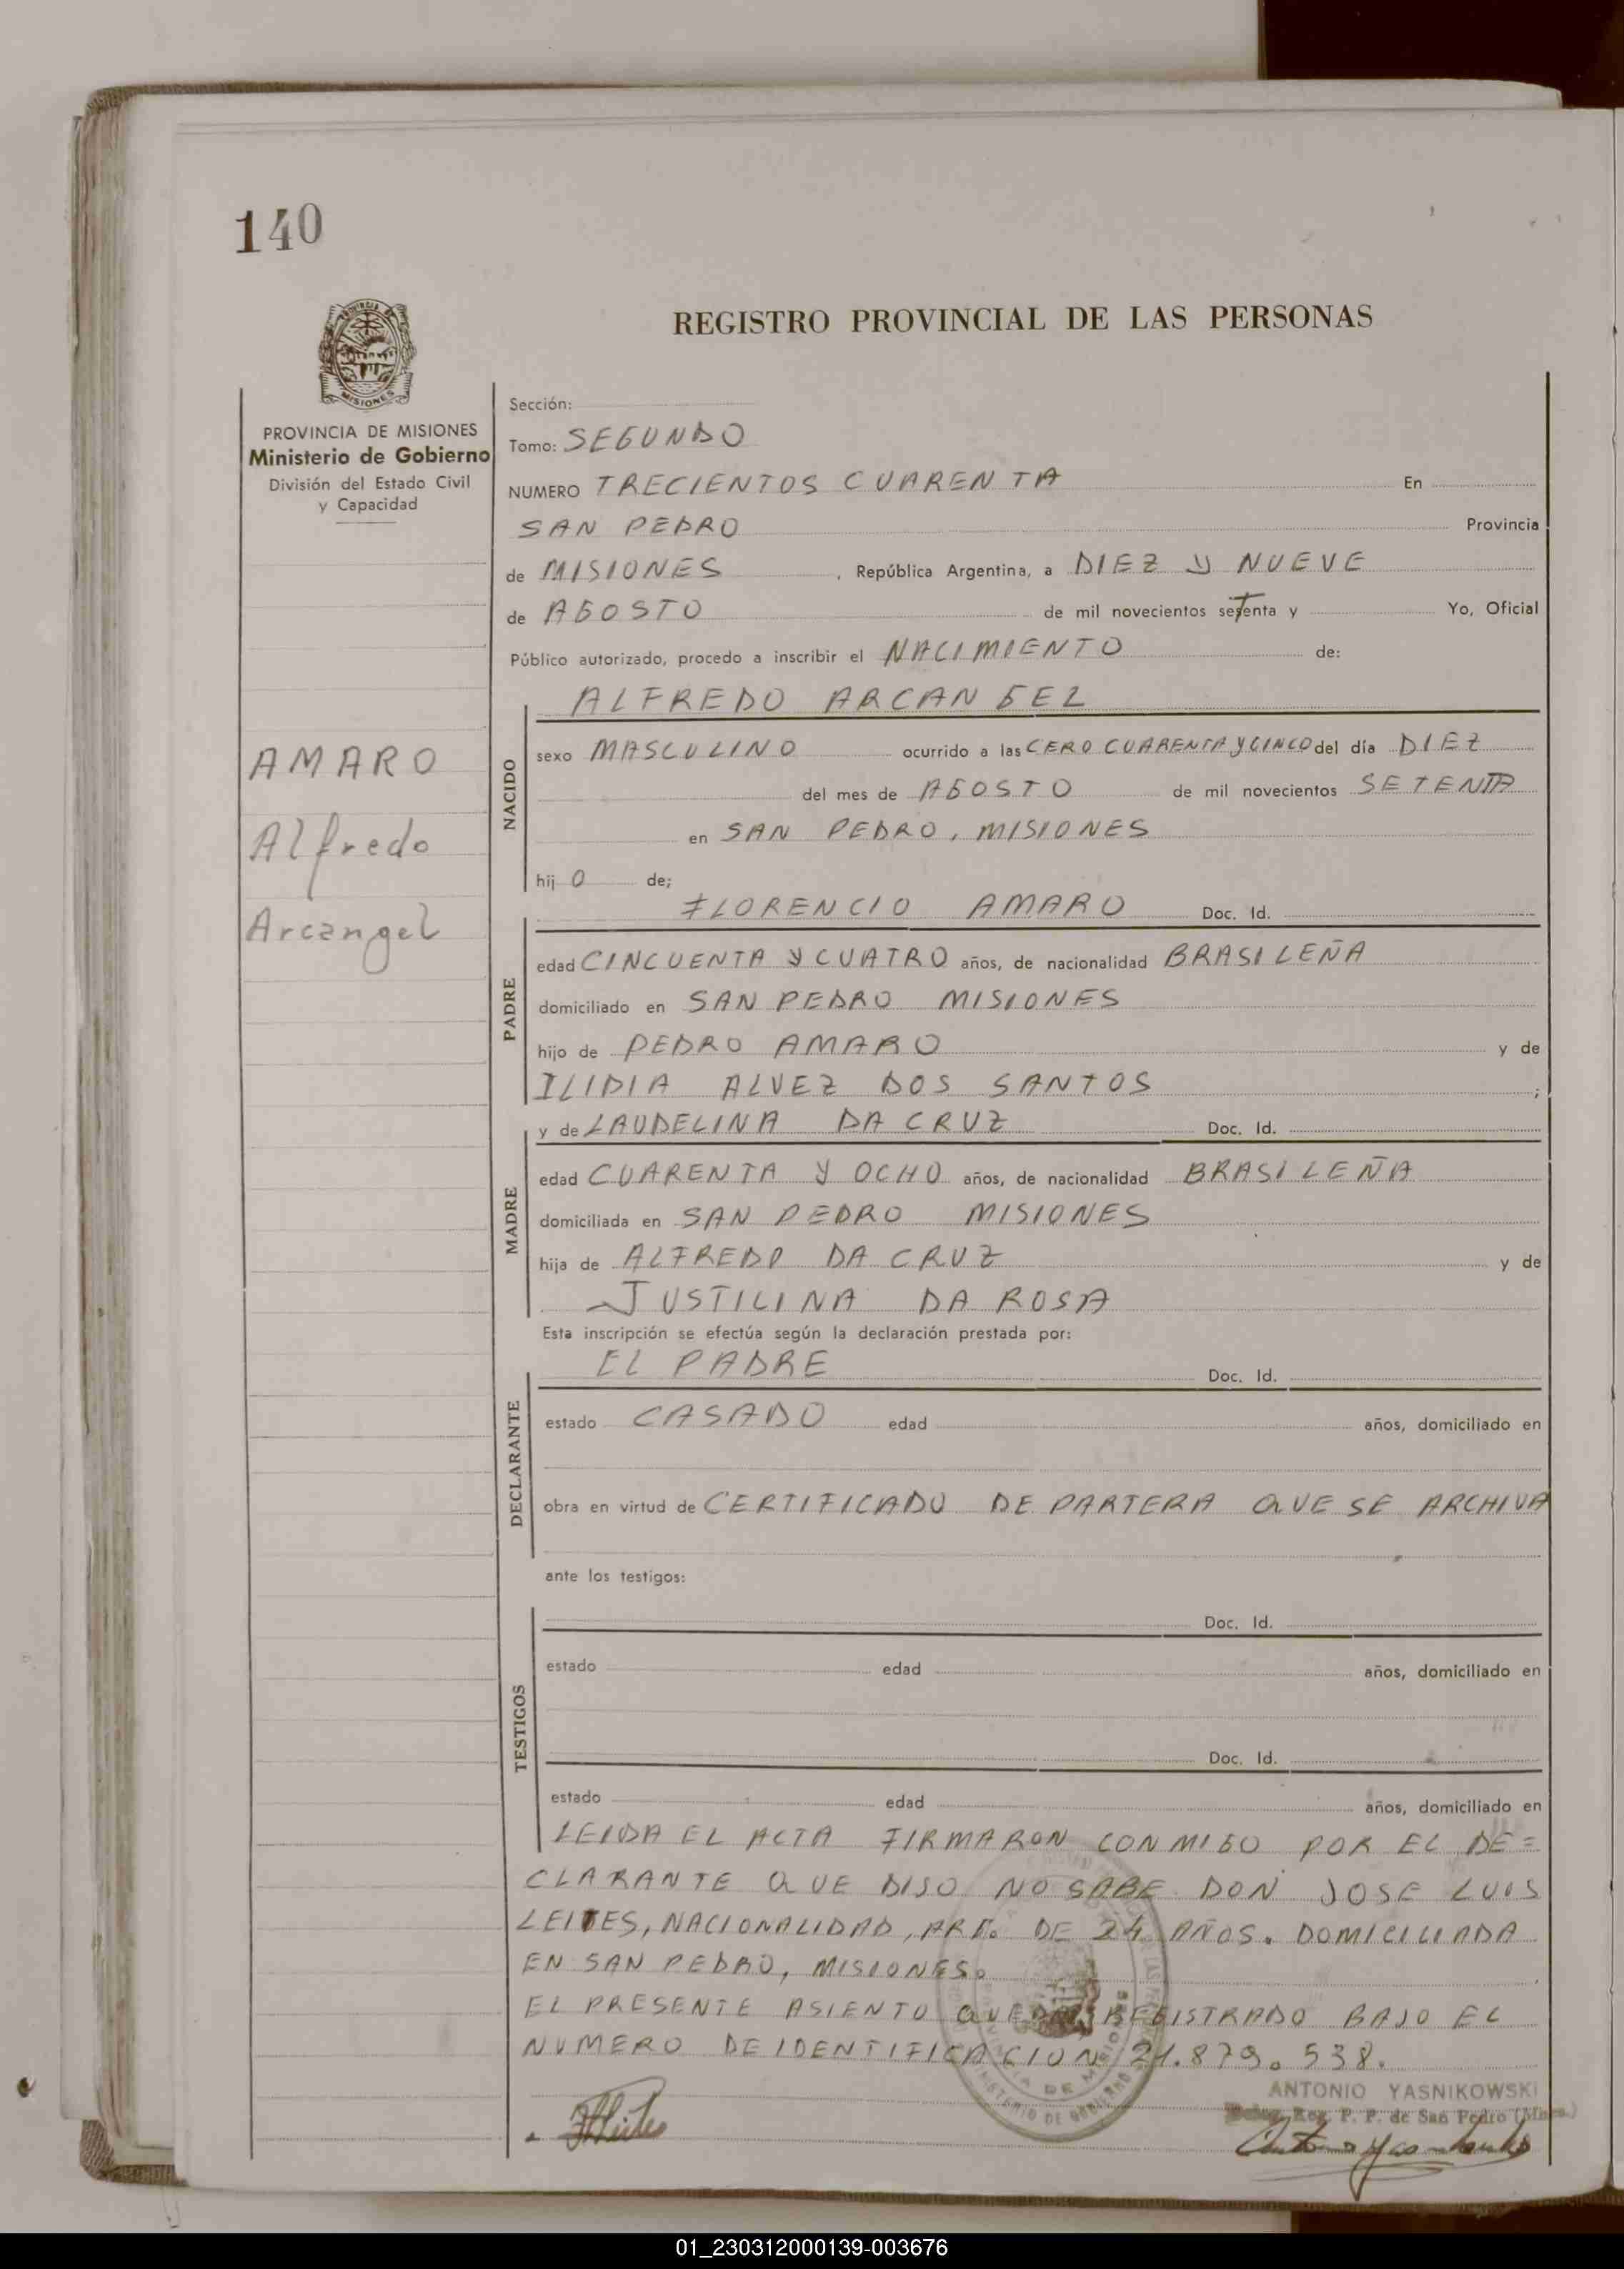 140
REGISTRO PROVINCIAL DE LAS PERSONAS
MISIONES
PROVINCIA DE MISIONES
Ministerio de Gobierno
División del Estado Civil
y Capacidad
AMARO
Alfredo
Arcangel
Sección:
Tomo: SEGUNDO
NUMERO TRECIENTOS CUARENTA En
SAN PEDRO Provincia
de MISIONES , República Argentina, a DIEZ Y NUEVE
de AGOSTO de mil novecientos setenta y Yo, Oficial
Público autorizado, procedo a inscribir el NACIMIENTO de:
ALFREDO ARCANGEL
NACIDO
sexo MASCULINO ocurrido a las CERO CUARENTA Y CINCO del día DIEZ
del mes de AGOSTO de mil novecientos SETENTA
en SAN PEDRO, MISIONES
hij O de;
FLORENCIO AMARO Doc. Id.
PADRE
edad CINCUENTA Y CUATRO años, de nacionalidad BRASILEÑA
domiciliado en SAN PEDRO MISIONES
hijo de PEDRO AMARO y de
ILIDIA ALVEZ DOS SANTOS ;
y de LAUDELINA DA CRUZ Doc. Id.
MADRE
edad CUARENTA Y OCHO años, de nacionalidad BRASILEÑA
domiciliada en SAN PEDRO MISIONES
hija de ALFREDO DA CRUZ y de
JUSTILINA DA ROSA
Esta inscripción se efectúa según la declaración prestada por:
EL PADRE Doc. Id.
DECLARANTE
estado CASADO edad años, domiciliado en
obra en virtud de CERTIFICADO DE PARTERA QUE SE ARCHIVA
ante los testigos:
Doc. Id.
TESTIGOS
estado edad años, domiciliado en
Doc. Id.
estado edad años, domiciliado en
LEIDA EL ACTA FIRMARON CONMIGO POR EL DE=
CLARANTE QUE DIJO NO SABE DON JOSE LUIS
LEITES, NACIONALIDAD, ARG. DE 24 AÑOS. DOMICILIADA
EN SAN PEDRO, MISIONES.
EL PRESENTE ASIENTO QUEDA REGISTRADO BAJO EL
NUMERO DE IDENTIFICACION 21.879.538.
ANTONIO YASNIKOWSKI
R. P. P. de San Pedro (Mnes.)
01_230312000139-003676